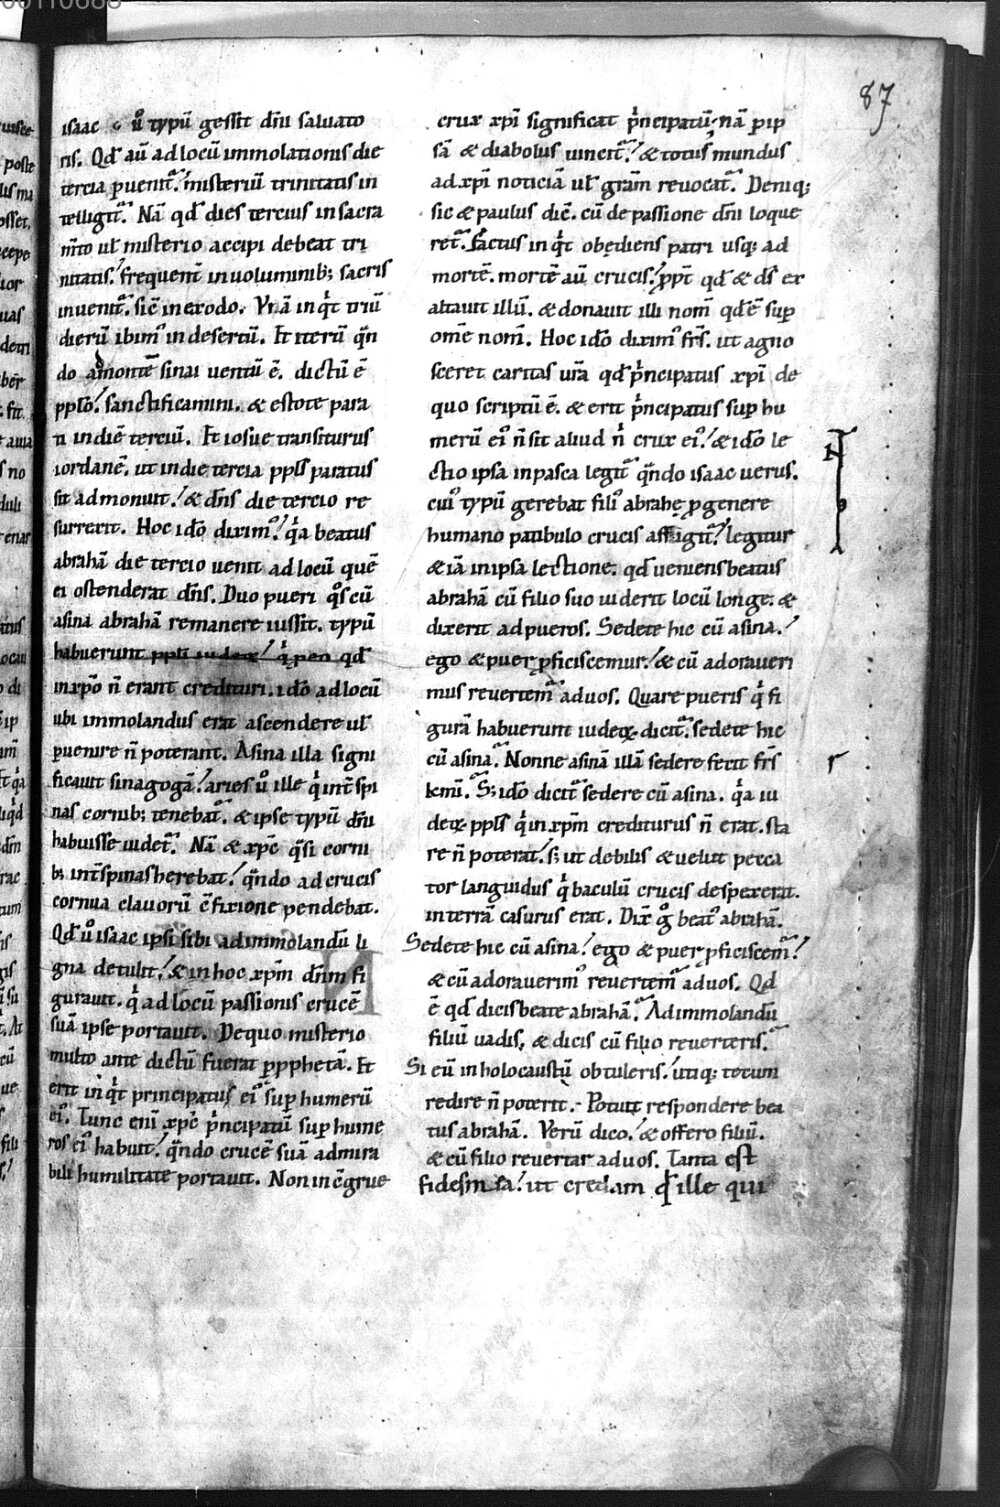 87
isaac · u͛o typū gessit dn̄i saluato
ris. Qd̄ aū ad locū immolationis die
tercia peruenitᷓ. misteriū trinitatis in
telligitᷓ. Nā qd̄ dies tercius in sacra
m̄to ul̄ misterio accipi debeat tri
nitatis. frequent̄ in uoluminib; sacris
inuenitᷓ. sic̄ in exodo. Vnā inqͥt triū
dierū ibimꝰ in desertū. Et iterū qn̄
do ad montē sinai uentū ē. dictū ē
pplo. sanctificamini. & estote para
ti in diē terciū. Et iosue transiturus
iordanē. ut in die tercia ppls paratus
sit admonuit. & dn̄s die tercio re
surrexit. Hoc idō diximꝰ. qͥa beatus
abrahā die tercio uenit ad locū quē
ei ostenderat dn̄s. Duo pueri qͦs cū
asina abrahā remanere iussit. typū
habuerunt ppli iudeoꝝ qd̄
in xp̄o n̄ erant credituri. idō ad locū
ubi immolandus erat ascendere ul̄
ꝑuenire n̄ poterant. Asina illa signi
ficauit sinagogā. aries uͦ ille qͥ int̄ spi
nas cornib; tenebatᷓ. & ipse typū dn̄i
habuisse uidetᷓ. Nā & xp̄c qͣsi corni
b; int̄ spinas herebat. qn̄do ad crucis
cornua clauorū c̄fixione pendebat.
Qd̄ uͦ isaac ipsi sibi ad immolandū li
gna detulit. & in hoc xp̄m dn̄m fi
gurauit. qͥ ad locū passionis crucē
suā ipse portauit. De quo misterio
multo ante dictū fuerat ꝑ pphetā. Et
erit inqͥt principatus eiꝰ suꝑ humerū
eiꝰ. Tunc enī xp̄c pͥncipatū suꝑ hume
ros eiꝰ habuit. qn̄do crucē suā admira
bili humilitate portauit. Non inc̄grue
crux xp̄i significat pͥncipatū. nā ꝑ ip
sā & diabolus uincitᷓ. & totus mundus
ad xp̄i noticiā ul̄ gr̄am reuocatᷓ. Deniq;
sic & paulus dic̄. cū de passione dn̄i loque
retᷓ. Factus inqͥt obediens patri usq; ad
mortē. mortē aū crucis. ppt̄ qd̄ & ds̄ ex
altauit illū. & donauit illi nom̄ qd̄ ē suꝑ
om̄e nom̄. Hoc idō diximꝰ fr̄s. ut agno
sceret caritas ur̄a qd̄ pͥncipatus xp̄i de
quo scriptū ē. & erit pͥncipatus suꝑ hu
merū eiꝰ n̄ sit aliud nͥ crux eiꝰ. & idō le
ctio ipsa in pasca legitᷓ qn̄do isaac uerus.
cuiꝰ typū gerebat filiꝰ abrahę ꝓ genere
humano patibulo crucis affigitᷓ. legitur
& iā in ipsa lectione. qd̄ ueniens beatus
abrahā cū filio suo uiderit locū longe. &
dixerit ad pueros. Sedete hic cū asina.
ego & puer ꝓficiscemur. & cū adorauerí
mus reuertemᷓ ad uos. Quare pueris qͥ fi
gurā habuerunt iudeoꝝ dicitᷓ. sedete hic
cū asinaᷓ. Nonne asinā illā sedere fecit fr̄s
km̄iᷓ. S; idō dicitᷓ sedere cū asina. qͥa iu
deoꝝ ppls qͥ in xp̄m crediturus n̄ erat. sta
re n̄ poterat. s; ut debilis & uelut pecca
tor languidus qͥ baculū crucis despexerat.
in terrā casurus erat. Dix̄ gͦ beatꝰ abrahā.
Sedete hic cū asina. ego & puer ꝓficiscemᷓ
& cū adorauerimꝰ reuertemᷓ ad uos. Qd
ē qd̄ dicis beate abrahāᷓ. Ad immolandū
filiū uadis, & dicis cū filio reuerterisᷓ.
Si eū in holocaustū obtuleris. utiq; tecum
redire n̄ poterit. Potuit respondere bea
tus abrahā. Verū dico. & offero filiū.
& cū filio reuertar ad uos. Tanta est
fides m̄ ut credam qd̄ ille qui